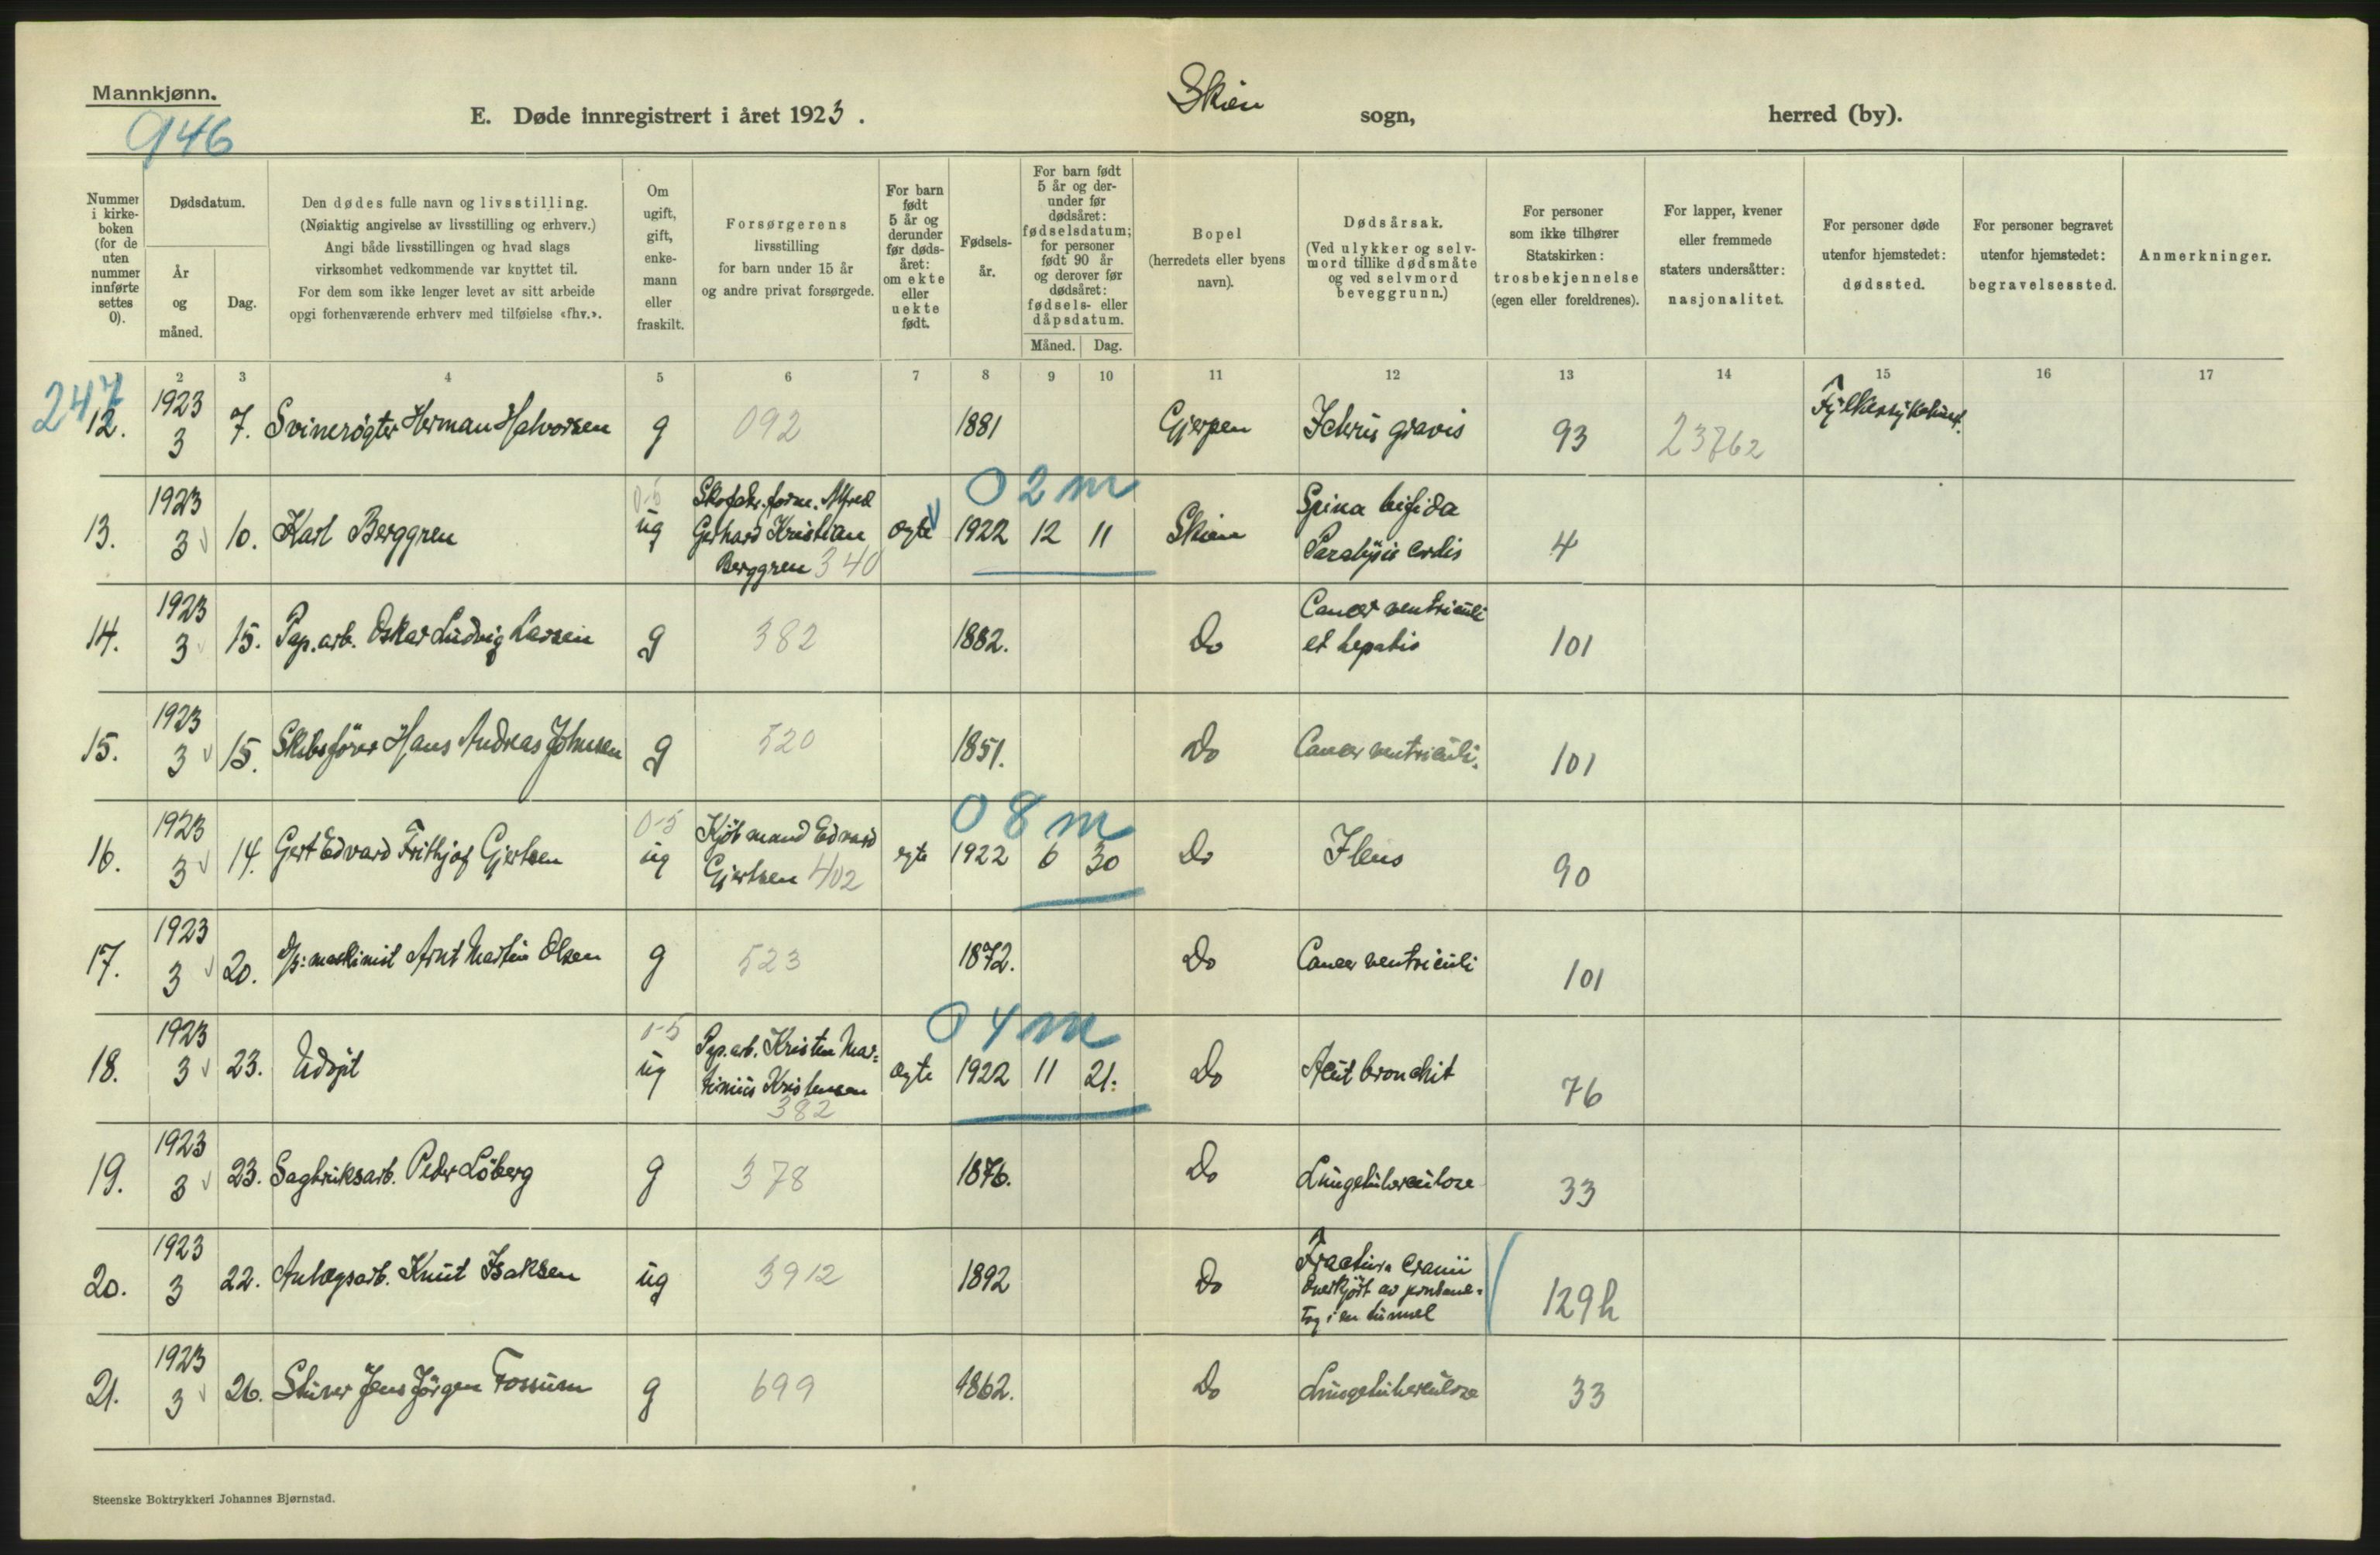 Mannkjønn.
946
E. Døde innregistrert i året 1923.
Skien
sogn,
herred (by).
Nummer i kirke- boken (for de uten nummer innførte settes 0).
Dødsdatum.
År og måned.
Dag.
Den dødes fulle navn og livsstilling.
(Nøiaktig angivelse av livsstilling og erhverv.)
Angi både livsstillingen og hvad slags
virksomhet vedkommende var knyttet til.
For dem som ikke lenger levet av sitt arbeide
opgi forhenværende erhverv med tilføielse «fhv.».
Om ugift, gift, enke- mann eller fraskilt.
Forsørgerens
livsstilling
for barn under 15 år
og andre privat forsørgede.
For barn født 5 år og derunder før døds- året: om ekte eller uekte født.
Fødsels- år.
For barn født 5 år og der- under før dødsåret: fødselsdatum; for personer født 90 år og derover før dødsåret: fødsels- eller dåpsdatum.
Måned. Dag.
Bopel
(herredets eller byens navn).
Dødsårsak.
(Ved ulykker og selv- mord tillike dødsmåte og ved selvmord beveggrunn.)
For personer
som ikke tilhører
Statskirken:
trosbekjennelse
(egen eller foreldrenes).
For lapper, kvener
eller fremmede
staters undersåtter:
nasjonalitet.
For personer døde
utenfor hjemstedet:
dødssted.
For personer begravet
utenfor hjemstedet:
begravelsessted.
Anmerkninger.
2 3 4 5 6 7 8 9 10 11 12 13 14 15 16 17
247
12. 1923 3 7. Svinerøgter Herman Halvorsen g 092 1881 Gjerpen Icterus gravis 93 23762 Fylkessykehuset.
02m
13. 1923 3 10. Karl Berggren 0-5 ug Skofabr.form. Alfred Gerhard Kristian Berggren 340 ægte 1922 12 11 Skien Spina bifida Paralysis cordis 4
14. 1923 3 15. Pap.arb. Oskar Ludvig Larsen g 382 1882. Do Cancer ventriculi et hepatis 101
15. 1923 3 15. Skibsfører Hans Andreas Johnsen g 520 1851. Do Cancer ventriculi. 101
08m
16. 1923 3 14. Gert Edvard Frithjof Gjertsen 0-5 ug Kjøbmand Edvard Gjertsen 402 egte 1922 6 30 Do Ileus 90
17. 1923 3 20. D/s: maskinist Arnt Martin Olsen g 523 1872. Do Cancer ventriculi 101
04m
18. 1923 3 23. Udøpt 0-5 ug Pap.arb. Kristen Mar= tinius Kristensen 382 ægte 1922 11 21. Do Acut bronchit 76
19. 1923 3 23. Sagbruksarb. Peder Løberg g 378 1876. Do Lungetuberculose 33
20. 1923 3 22. Anlægsarb. Knut Isaksen ug 3912 1892 Do Fractura cranii Overkjørt av tog i en tunnel 129h
21. 1923 3 26. Stuver Jens Jørgen Fossum g 699 1862. Do Lungetuberculose 33
Steenske Boktrykkeri Johannes Bjørnstad.